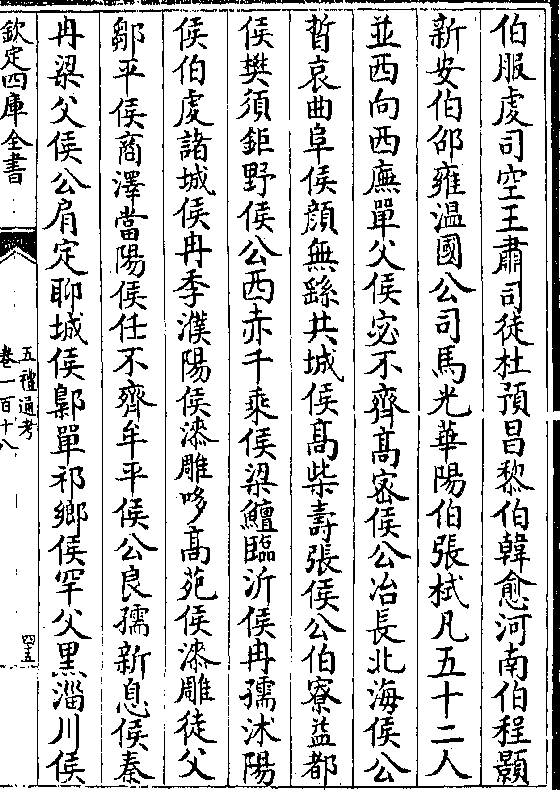 伯服䖍司空王肅司徒杜預昌黎伯韓愈河南伯程顥
新安伯邵雍温國公司馬光華陽伯張栻凡五十二人
並西向西廡單父侯宓不齊髙密侯公冶長北海侯公
晳哀曲阜侯顔無繇共城侯髙柴壽張侯公伯寮益都
侯樊須鉅野侯公西赤千乘侯梁鱣臨沂侯冉孺沐陽
侯伯䖍諸城侯冉季濮陽侯漆雕哆髙苑侯漆雕徒父
鄒平侯商澤當陽侯任不齊牟平侯公良孺新息侯秦
冉梁父侯公肩定聊城侯鄡單祁鄉侯罕父黒淄川侯
欽定四庫全書
五禮通考
卷一百十八
四五